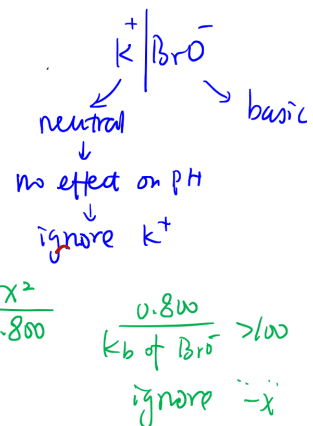 K⁺ | BrO⁻
neutral
basic
↓
no effect on pH
↓
ignore K⁺
x²/.800
0.800/Kb of BrO⁻ >100
ignore "-x"